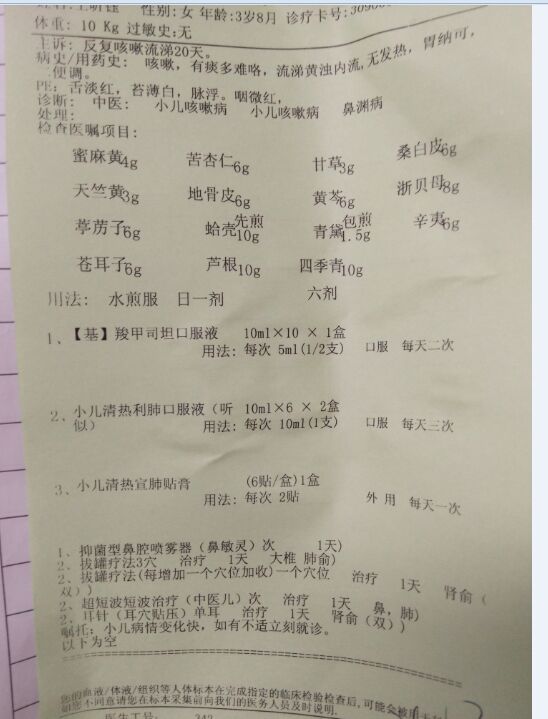 性别:女 年龄:3岁8月 诊疗卡号:309000
体重: 10 Kg 过敏史:无
主诉: 反复咳嗽流涕20天。
病史/用药史: 咳嗽,有痰多难咯,流涕黄浊内流,无发热, 胃纳可,
二便调。
PE: 舌淡红,苔薄白,脉浮。咽微红,
诊断: 中医: 小儿咳嗽病 小儿咳嗽病 鼻渊病
处理:
检查医嘱项目:
蜜麻黄4g 苦杏仁6g 甘草3g 桑白皮6g
天竺黄3g 地骨皮6g 黄芩6g 浙贝母8g
葶苈子6g 蛤壳先煎10g 青黛包煎1.5g 辛夷6g
苍耳子6g 芦根10g 四季青10g
用法: 水煎服 日一剂 六剂
1、【基】羧甲司坦口服液 10ml×10 × 1盒
用法: 每次 5ml(1/2支) 口服 每天二次
2、小儿清热利肺口服液(听 10ml×6 × 2盒
似) 用法: 每次 10ml(1支) 口服 每天三次
3、小儿清热宣肺贴膏 (6贴/盒)1盒
用法: 每次 2贴 外 用 每天一次
1、抑菌型鼻腔喷雾器(鼻敏灵)次 1天)
2、拔罐疗法3穴 治疗 1天 大椎 肺俞)
2、拔罐疗法(每增加一个穴位加收)一个穴位 治疗 1天 肾俞(
双))
2、超短波短波治疗(中医儿)次 治疗 1天 鼻,肺)
2、耳针(耳穴贴压)单耳 治疗 1天 肾俞(双))
嘱托: 小儿病情变化快,如有不适立刻就诊。
以下为空
您的血液/体液/组织等人体标本在完成指定的临床检验检查后,可能会被用
如您不同意请您在标本采集前向我们的医务人员及时说明.
医生工号: 342